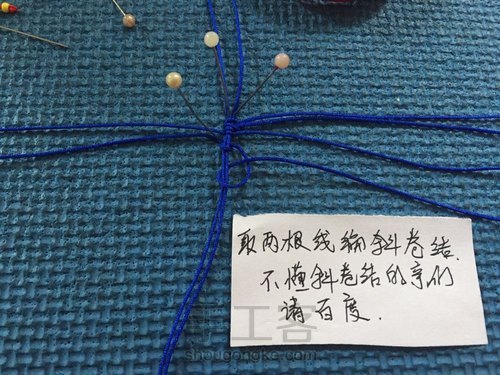 取两根线编斜卷结.
不懂斜卷结的亲们
请百度.
手工客
shougongke.com